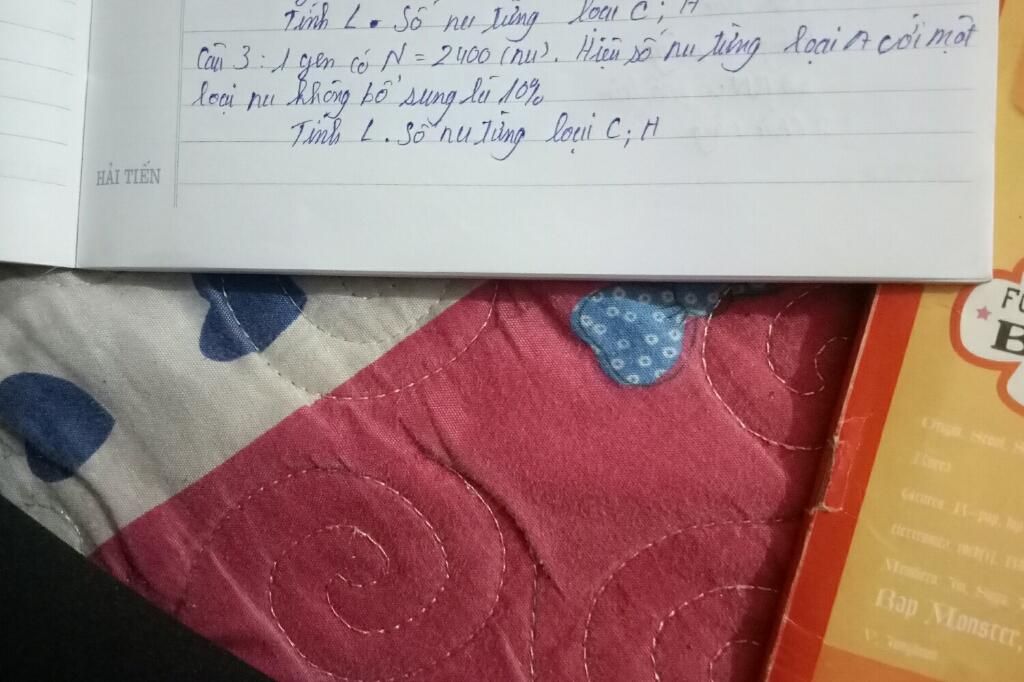 Tính L. Số nu từng loại C; H
Câu 3: 1 gen có N = 2400 (nu). Hiệu số nu từng loại A với một
loại nu không bổ sung là 10%
Tính L. Số nu từng loại C; H
HẢI TIẾN
FU
B
Origin Seoul, S
Korea
Genres K-pop, hip
electronica,
Members Jin, Suga,
Rap Monster,
V, Jungkook